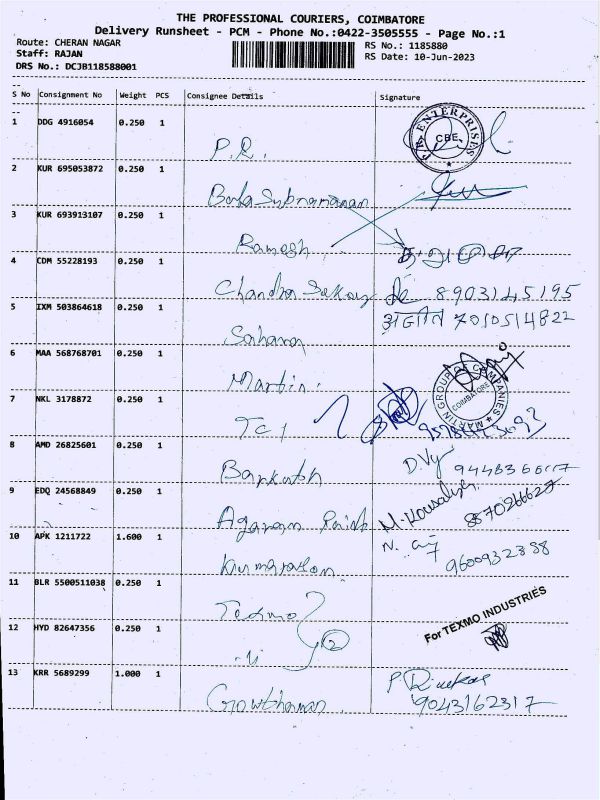 THE PROFESSIONAL COURIERS, COIMBATORE
Delivery Runsheet - PCM - Phone No.:0422-3505555 - Page No.:1
Route: CHERAN NAGAR RS No.: 1185880
Staff: RAJAN RS Date: 10-Jun-2023
DRS No.: DCJB118588001
S No Consignment No Weight PCS Consignee Details Signature
1 DDG 4916054 0.250 1
P.R. ENTERPRISES CBE
2 KUR 695053872 0.250 1
Bala Subramanan
3 KUR 693913107 0.250 1
Ramesh
4 CDM 55228193 0.250 1
Chandra Sekar 8903145195
5 IXM 503864618 0.250 1 7010514822
Sahana
6 MAA 568768701 0.250 1
Martin. MARTIN GROUP OF COMPANIES COIMBATORE
7 NKL 3178872 0.250 1
TCI
8 AMD 26825601 0.250 1
Barkath
9 EDQ 24568849 0.250 1 M. Kousalya 8870266627
Agaram Paint
10 APK 1211722 1.600 1 9600932888
Kumaravlon
11 BLR 5500511038 0.250 1
Texmo For TEXMO INDUSTRIES
12 HYD 82647356 0.250 1
-11
13 KRR 5689299 1.000 1
Gowthaman 9043162317